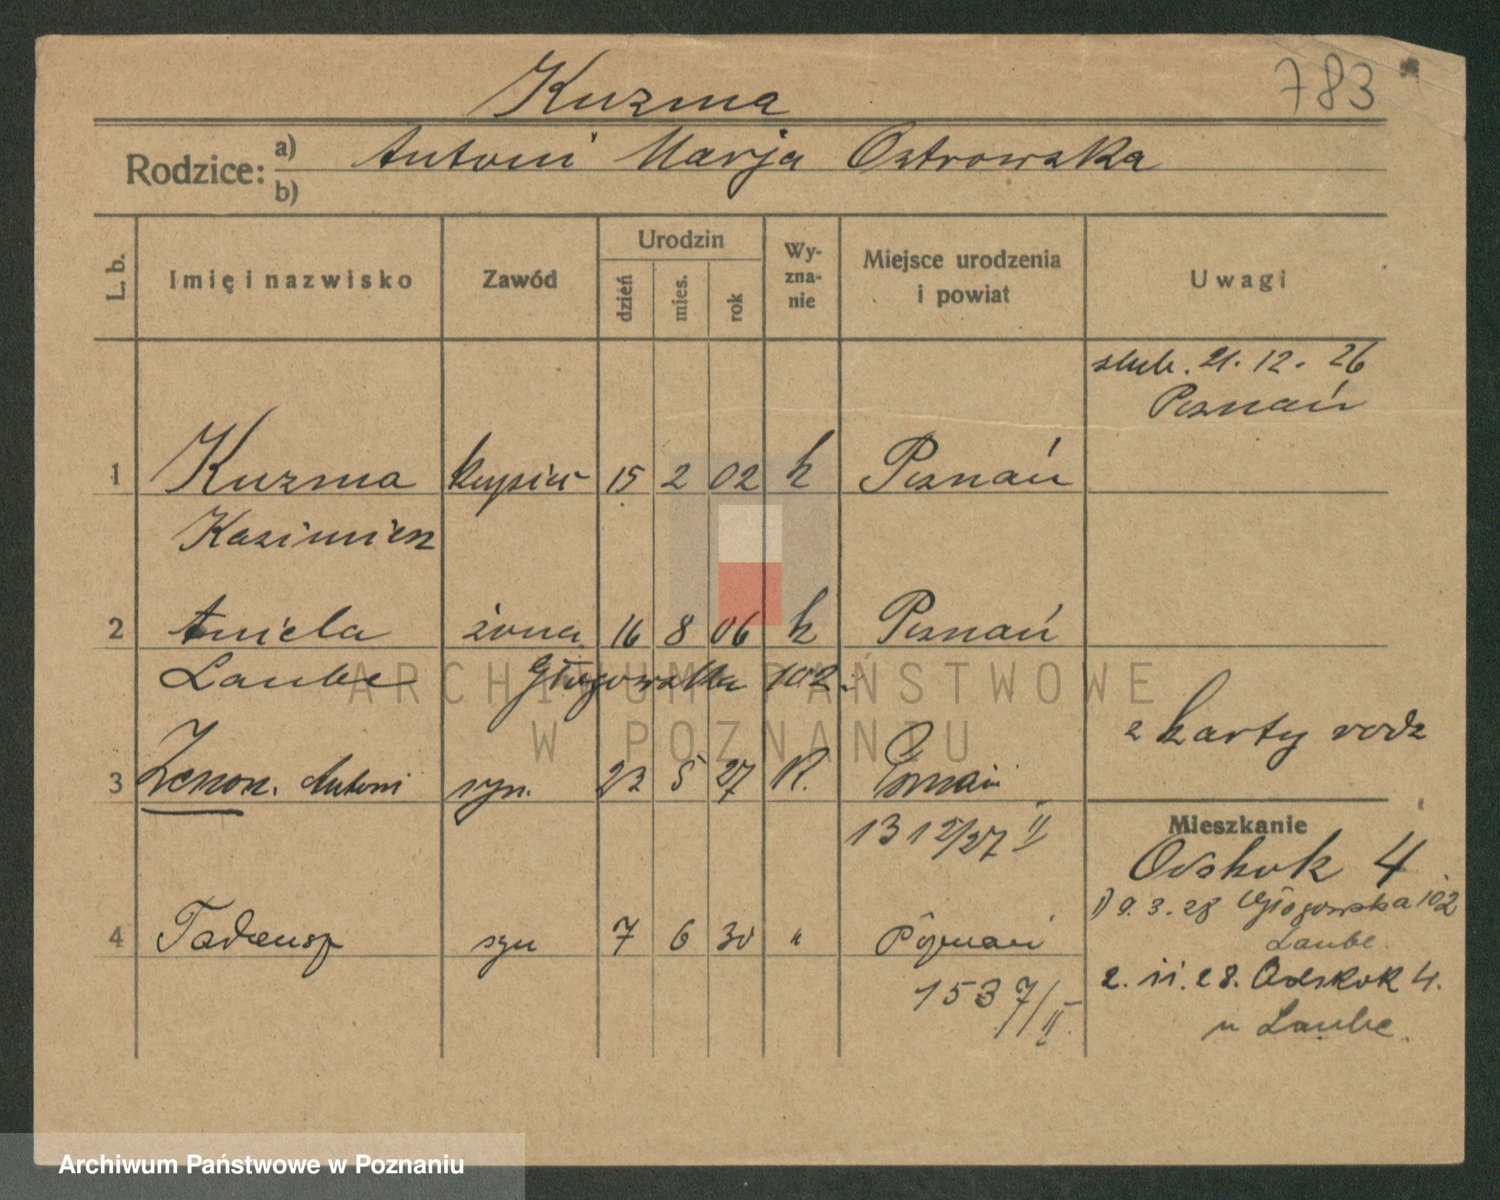 Kuzma
783
Rodzice: a) Antoni Marja Ostrowska
b)
L. b. Imię i nazwisko Zawód Urodzin dzień mies. rok Wy-zna-nie Miejsce urodzenia i powiat Uwagi
slub. 21. 12. 26
Poznań
1 Kuzma kupiec 15 2 02 k Poznań
Kazimierz
2 Aniela żona 16 8 06 k Poznań
Laube Głogowska 102.
z karty rodz
3 Zenon. Antoni syn. 23 5 27 R. Poznań
1312/27 II
Mieszkanie
Odskok 4
1) 9. 3. 28 Głogowska 102
Laube.
4 Tadeusz syn 7 6 30 " Poznań
2. 11. 28. Odskok 4.
1537/II
u Laube.
ARCHIWUM PAŃSTWOWE
W POZNANIU
Archiwum Państwowe w Poznaniu